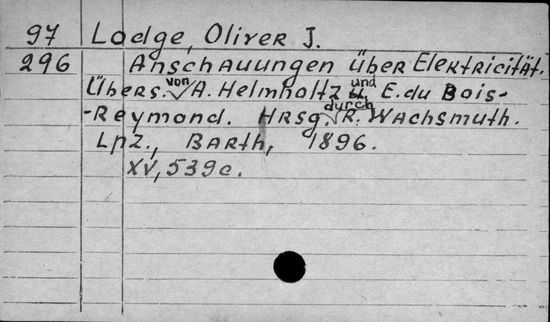 97 Lodge, Oliver J.
296 Anschauungen über Elektricität.
Übers. von A. Helmholtz und E. du Bois-
-Reymond. Hrsg. durch R. Wachsmuth.
Lpz., Barth, 1896.
XV, 539 c.